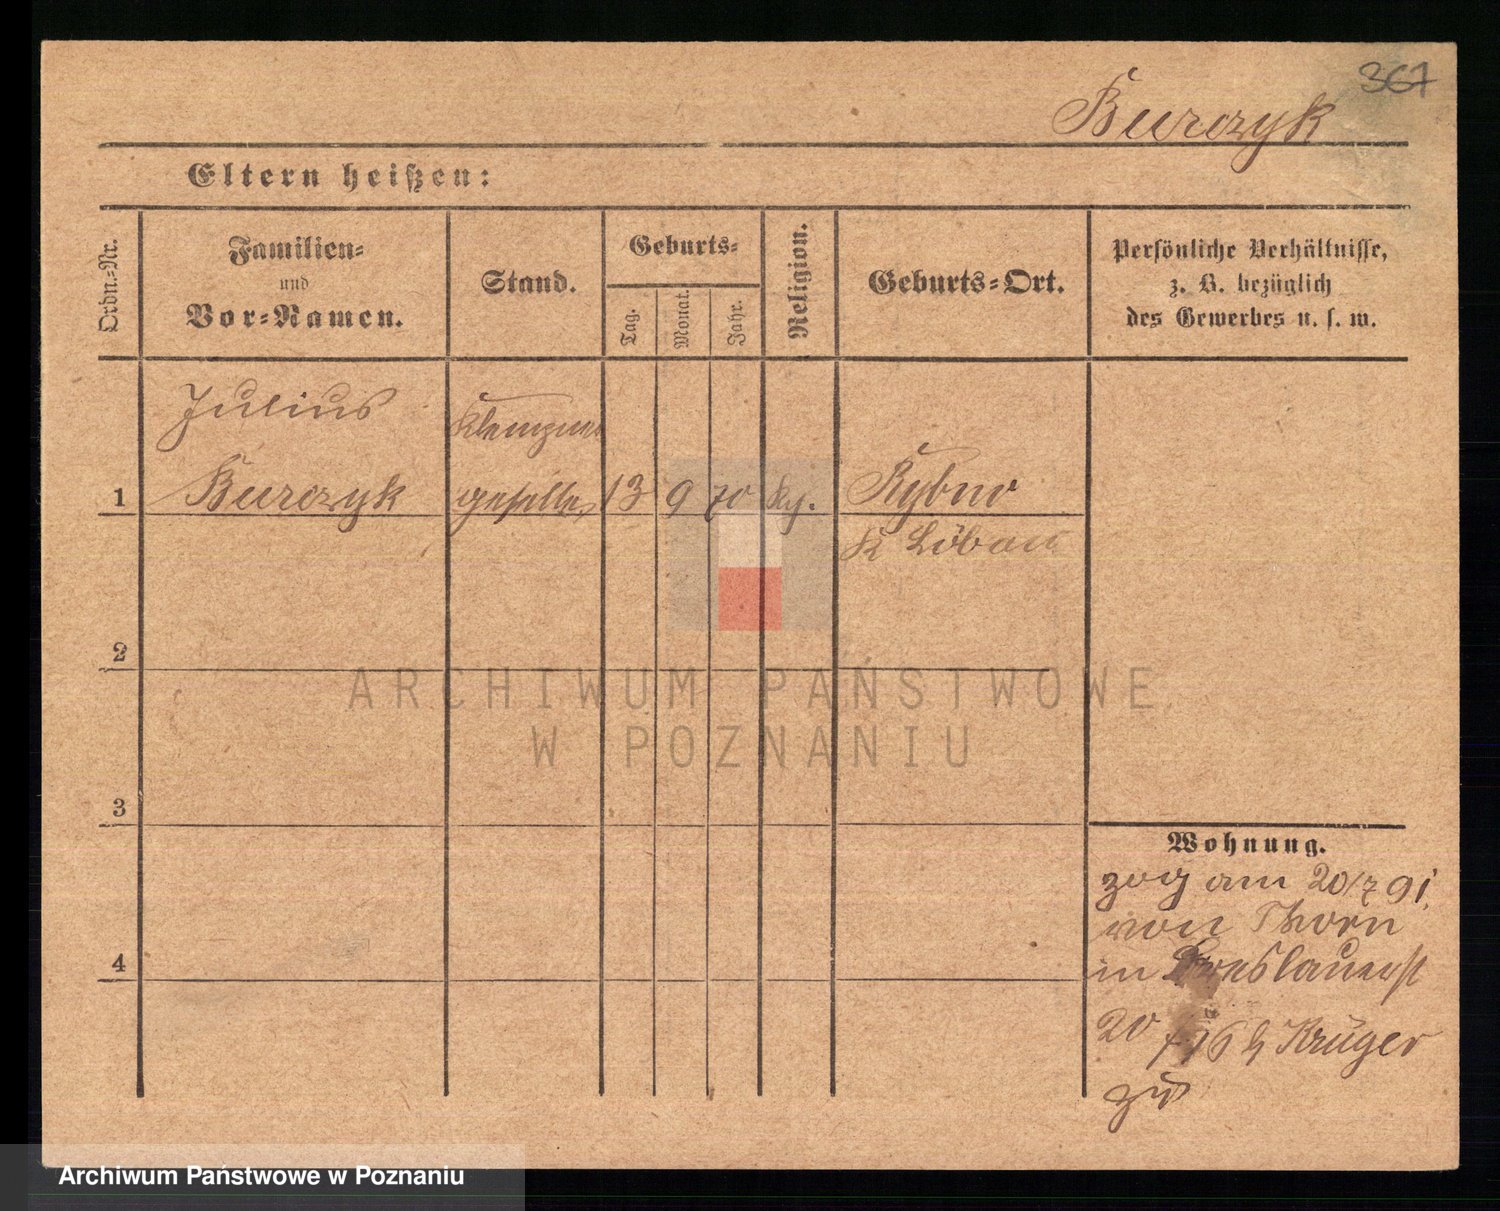 367
Burczyk
Eltern heißen:
Ordn.-Nr.
Familien-
und
Vor-Namen.
Stand.
Geburts-
Tag.
Monat.
Jahr.
Religion.
Geburts-Ort.
Persönliche Verhältnisse,
z. B. bezüglich
des Gewerbes u. s. w.
Julius
Klempner
1 Burczyk geselle 13 9 70 Rybno
Kr Löbau
2
3
4
Wohnung.
zog am 20/7 91.
von Thorn
in Breslauerst
20 16 b Krüger
zu
ARCHIWUM PAŃSTWOWE
W POZNANIU
Archiwum Państwowe w Poznaniu